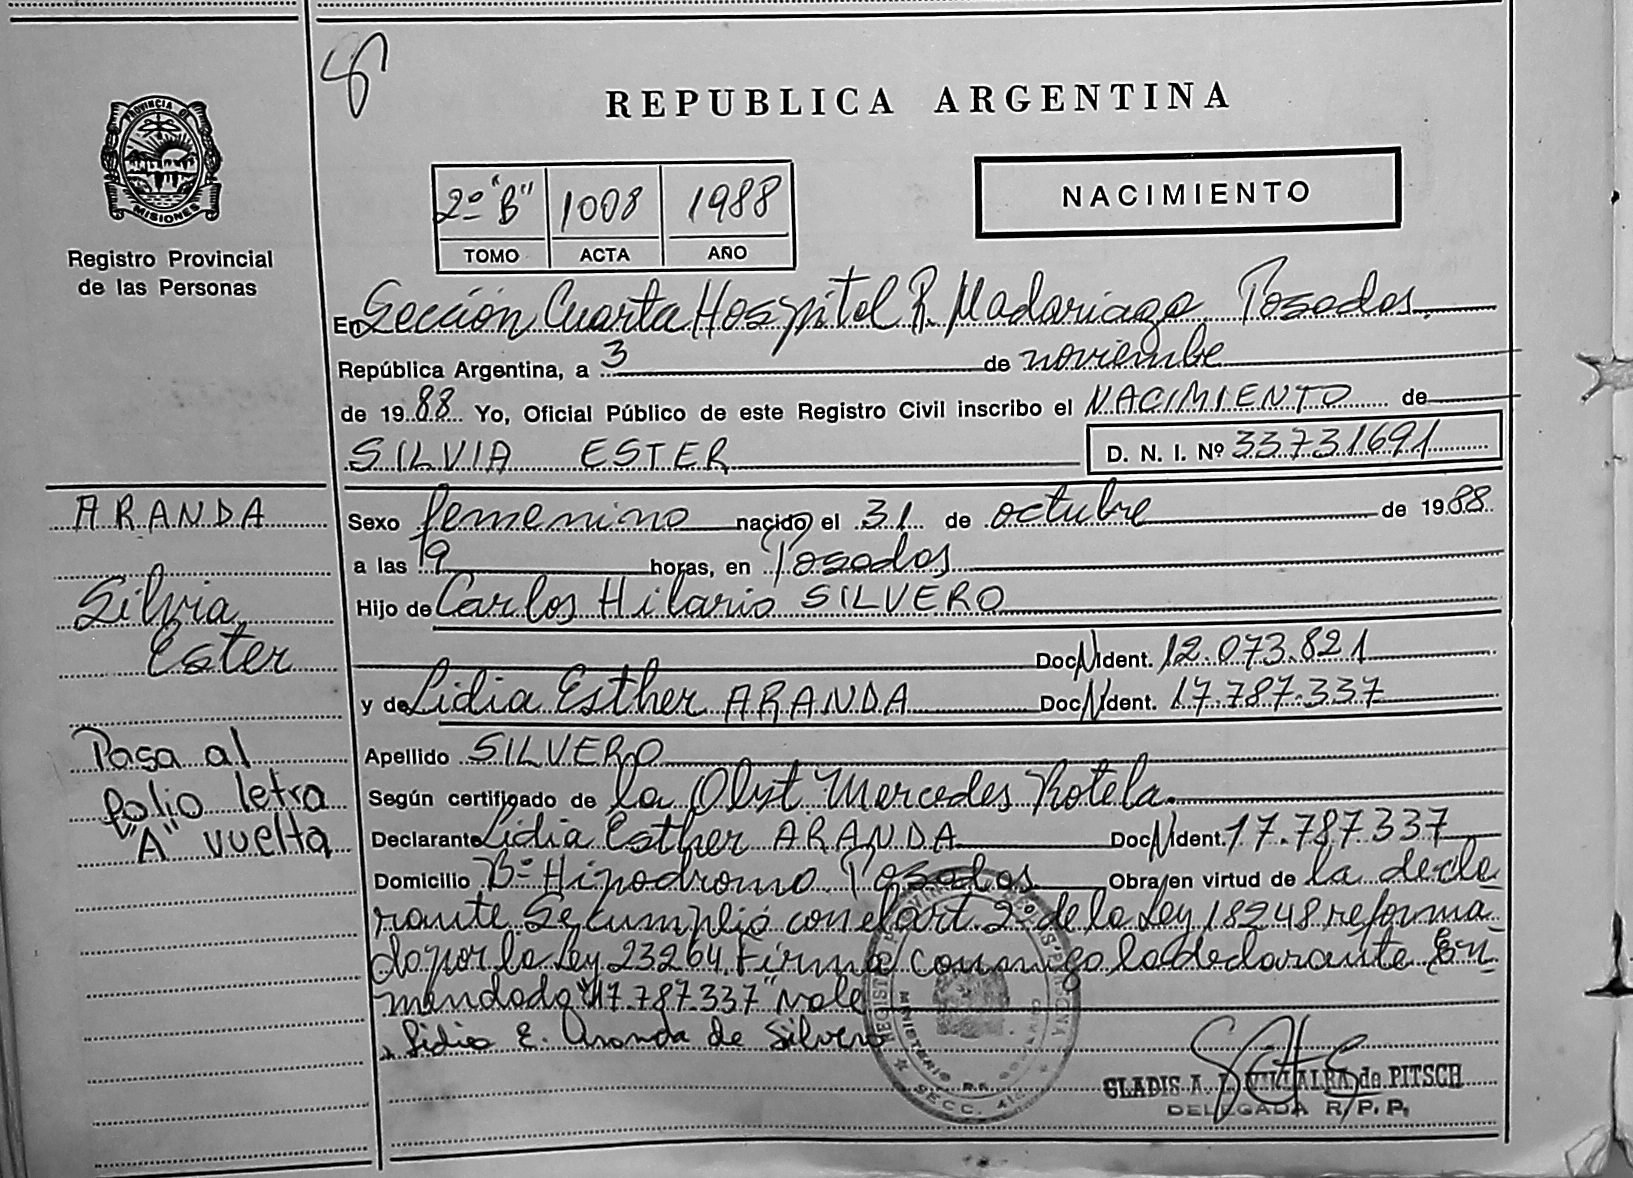 8
PROVINCIA DE
MISIONES
Registro Provincial
de las Personas
REPUBLICA ARGENTINA
2º "B" 1008 1988
TOMO ACTA AÑO
NACIMIENTO
En Sección Cuarta Hospital R. Madariaga Posadas
República Argentina, a 3 de noviembre
de 1988 Yo, Oficial Público de este Registro Civil inscribo el NACIMIENTO de
SILVIA ESTER D. N. I. Nº 33731691
ARANDA
Silvia
Ester
Pasa al
folio letra
"A" vuelta
Sexo femenino nacido el 31 de octubre de 1988
a las 19 horas, en Posadas
Hijo de Carlos Hilario SILVERO
Doc N Ident. 12.073.821
y de Lidia Esther ARANDA Doc N Ident. 17.787.337
Apellido SILVERO
Según certificado de la Obst Mercedes Rotela
Declarante Lidia Esther ARANDA Doc N Ident. 17.787.337
Domicilio Bº Hipodromo Posadas Obra en virtud de la decla
rante Se cumplió con el art 2º de la Ley 18248 reforma
do por la Ley 23264 Firma conmigo la declarante En
mendado "17.787.337" vale
Lidia E. Aranda de Silvero
GLADIS A. VILLALBA de PITSCH
DELEGADA R. P. P.
MINISTERIO DE
SECC. 4